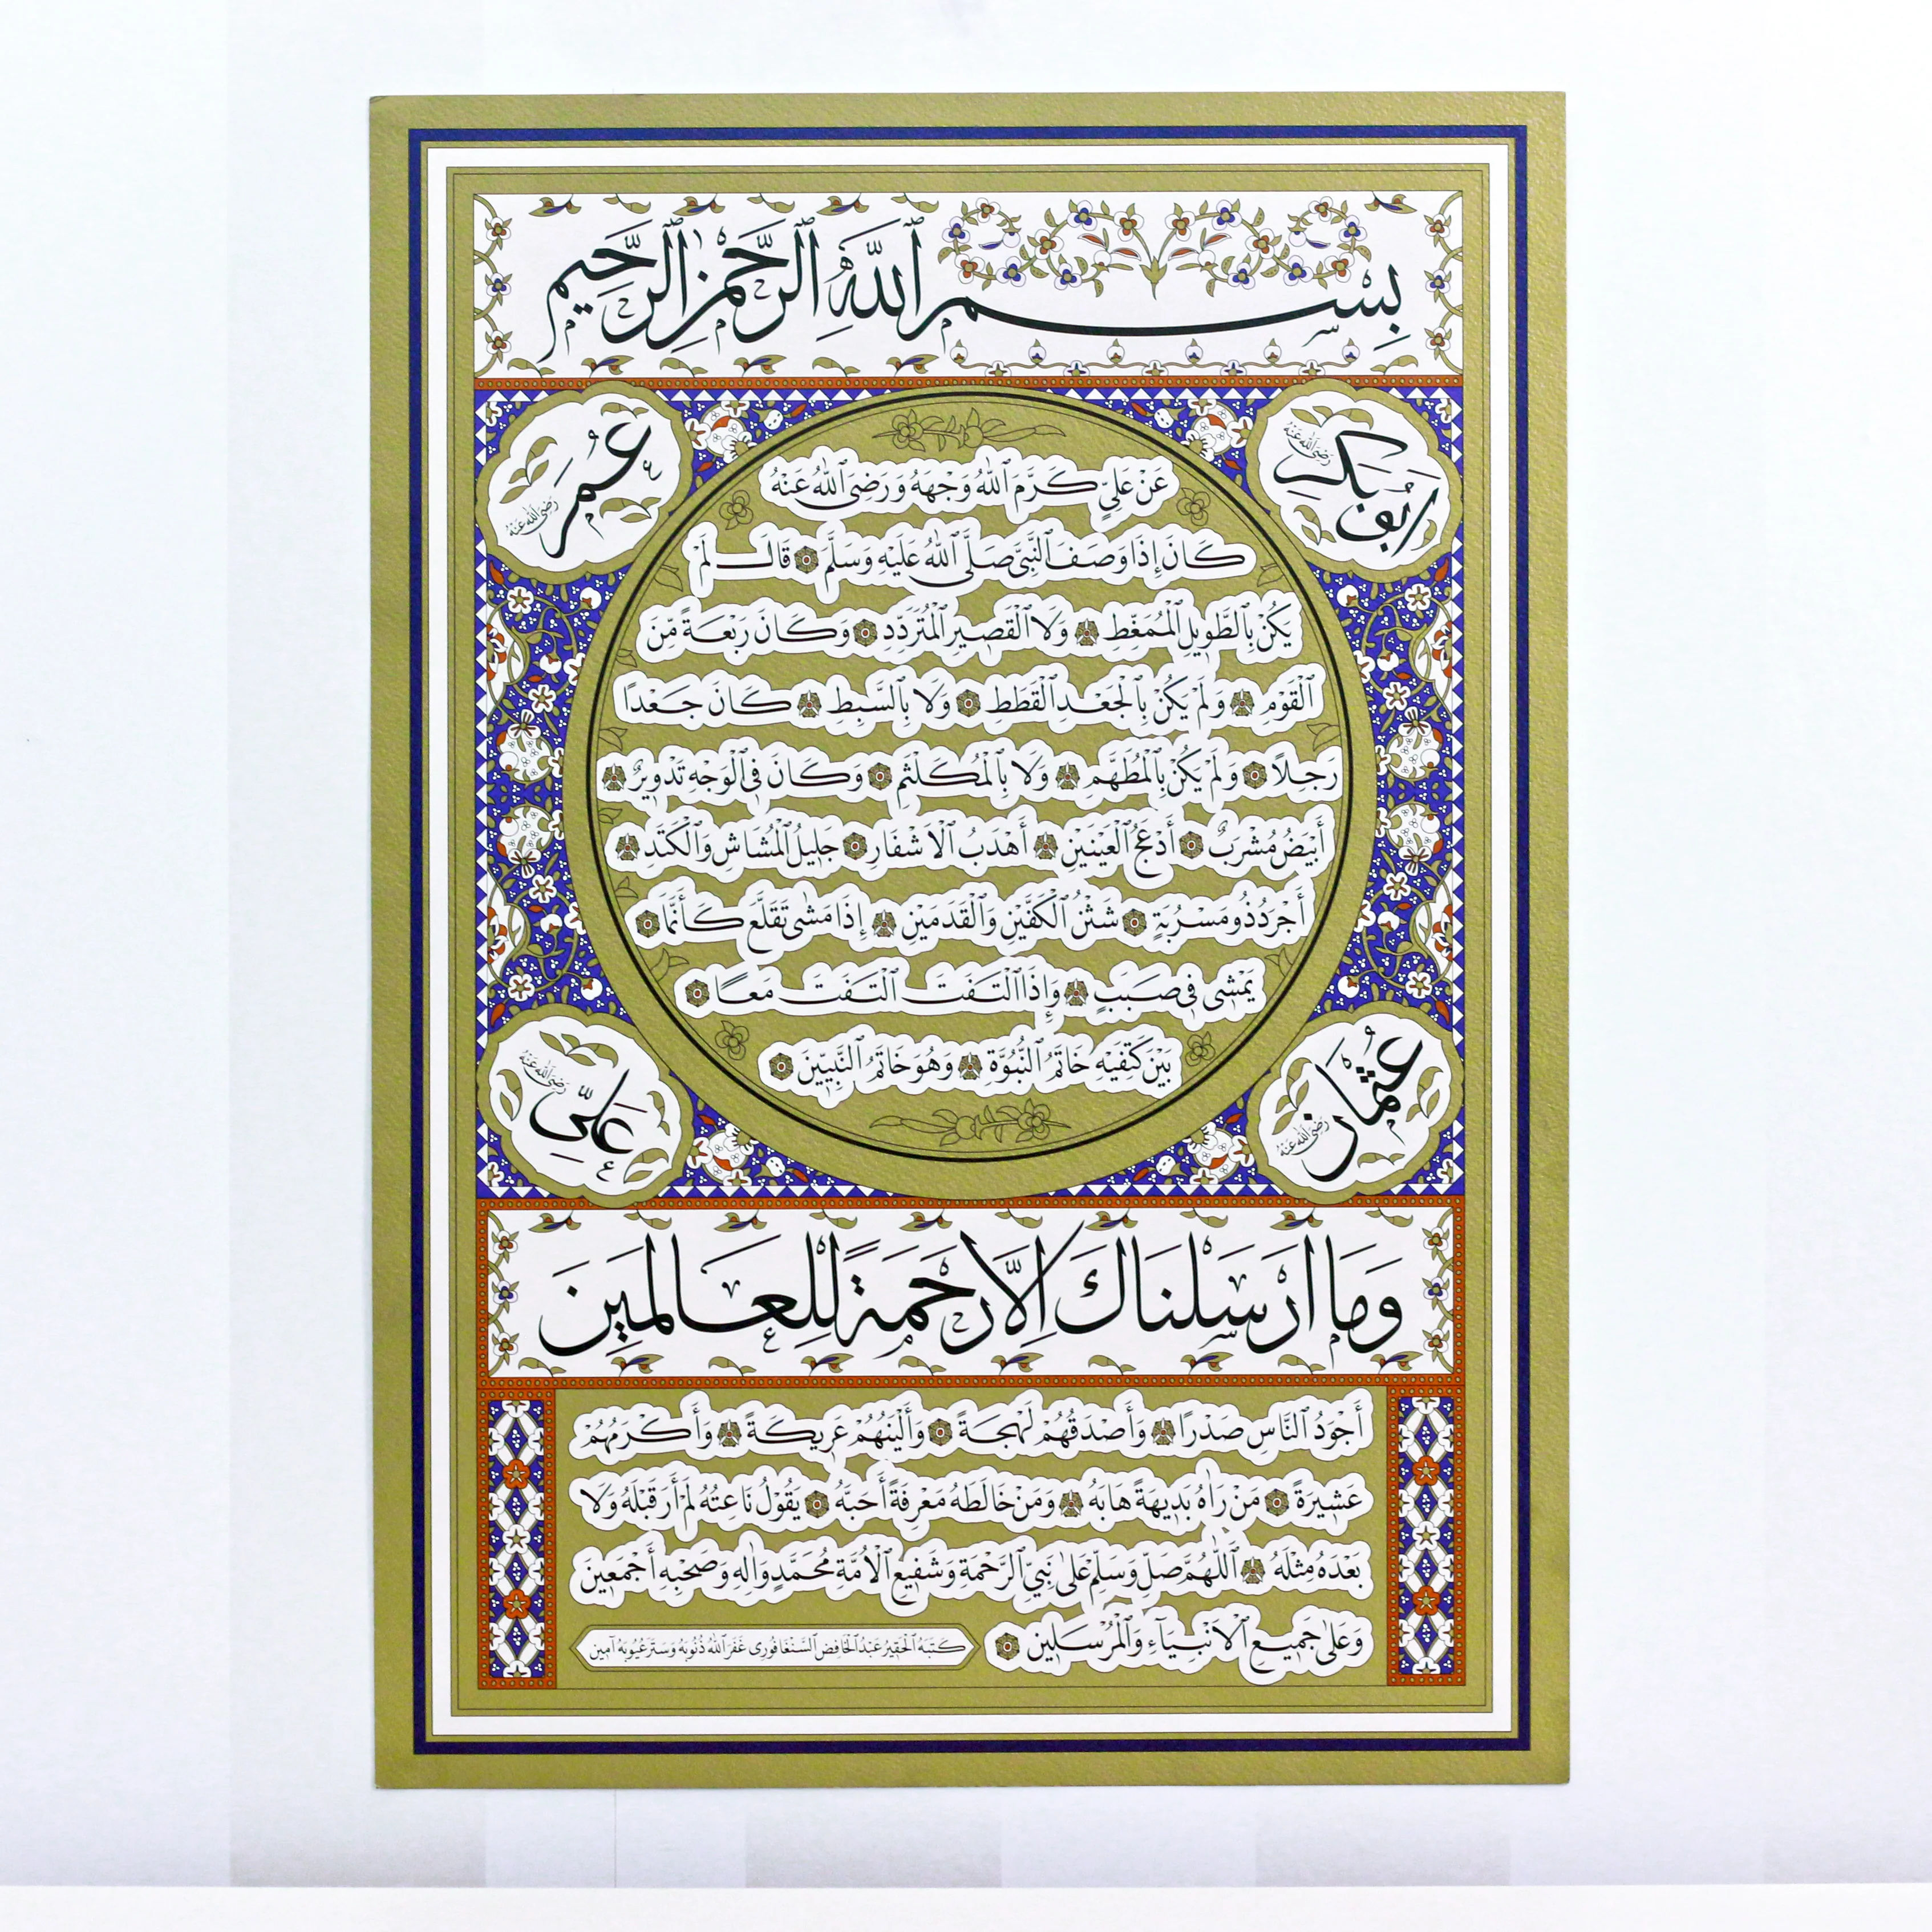 بِسْمِ ٱللَّهِ ٱلرَّحْمٰنِ ٱلرَّحِيمِ
أَبُو بَكْرٍ رَضِىَ ٱللهُ عَنْهُ
عُمَر رَضِىَ ٱللهُ عَنْهُ
عَنْ عَلِيٍّ كَرَّمَ ٱللهُ وَجْهَهُ وَرَضِىَ ٱللهُ عَنْهُ
كَانَ إِذَا وَصَفَ ٱلنَّبِىَّ صَلَّى ٱللهُ عَلَيْهِ وَسَلَّمَ ۞ قَالَ لَمْ
يَكُنْ بِٱلطَّوِيلِ ٱلْمُمَغَّطِ ۞ وَلَا ٱلْقَصِيرِ ٱلْمُتَرَدِّدِ ۞ وَكَانَ رَبْعَةً مِّنَ
ٱلْقَوْمِ ۞ وَلَمْ يَكُنْ بِٱلْجَعْدِ ٱلْقَطَطِ ۞ وَلَا بِٱلسَّبِطِ ۞ كَانَ جَعْدًا
رَجِلًا ۞ وَلَمْ يَكُنْ بِٱلْمُطَهَّمِ ۞ وَلَا بِٱلْمُكَلْثَمِ ۞ وَكَانَ فِى ٱلْوَجْهِ تَدْوِيرٌ ۞
أَبْيَضُ مُشْرَبٌ ۞ أَدْعَجُ ٱلْعَيْنَيْنِ ۞ أَهْدَبُ ٱلْاَشْفَارِ ۞ جَلِيلُ ٱلْمُشَاشِ وَٱلْكَتَدِ ۞
أَجْرَدُ ذُو مَسْرُبَةٍ ۞ شَثْنُ ٱلْكَفَّيْنِ وَٱلْقَدَمَيْنِ ۞ إِذَا مَشٰى تَقَلَّعَ كَأَنَّمَا ۞
يَمْشِى فِى صَبَبٍ ۞ وَإِذَا ٱلْتَفَتَ ٱلْتَفَتَ مَعًا ۞
بَيْنَ كَتِفَيْهِ خَاتَمُ ٱلنُّبُوَّةِ ۞ وَهُوَ خَاتَمُ ٱلنَّبِيِّينَ ۞
عُثْمَان رَضِىَ ٱللهُ عَنْهُ
عَلِيّ رَضِىَ ٱللهُ عَنْهُ
وَمَا اَرْسَلْنَاكَ اِلَّا رَحْمَةً لِلْعَالَمِينَ
أَجْوَدُ ٱلنَّاسِ صَدْرًا ۞ وَأَصْدَقُهُمْ لَهْجَةً ۞ وَأَلْيَنُهُمْ عَرِيكَةً ۞ وَأَكْرَمُهُمْ
عَشِيرَةً ۞ مَنْ رَاٰهُ بَدِيهَةً هَابَهُ ۞ وَمَنْ خَالَطَهُ مَعْرِفَةً أَحَبَّهُ ۞ يَقُولُ نَاعِتُهُ لَمْ أَرَ قَبْلَهُ وَلَا
بَعْدَهُ مِثْلَهُ ۞ ٱللّٰهُمَّ صَلِّ وَسَلِّمْ عَلٰى نَبِيِّ ٱلرَّحْمَةِ وَشَفِيعِ ٱلْاُمَّةِ مُحَمَّدٍ وَاٰلِهِ وَصَحْبِهِ أَجْمَعِينَ
وَعَلٰى جَمِيعِ ٱلْاَنْبِيَاءِ وَٱلْمُرْسَلِينَ ۞
كَتَبَهُ ٱلْحَقِيرُ عَبْدُ ٱلْحَافِض ٱلسَّنْغَافُورِى غَفَرَ ٱللهُ ذُنُوبَهُ وَسَتَرَ عُيُوبَهُ آمِين